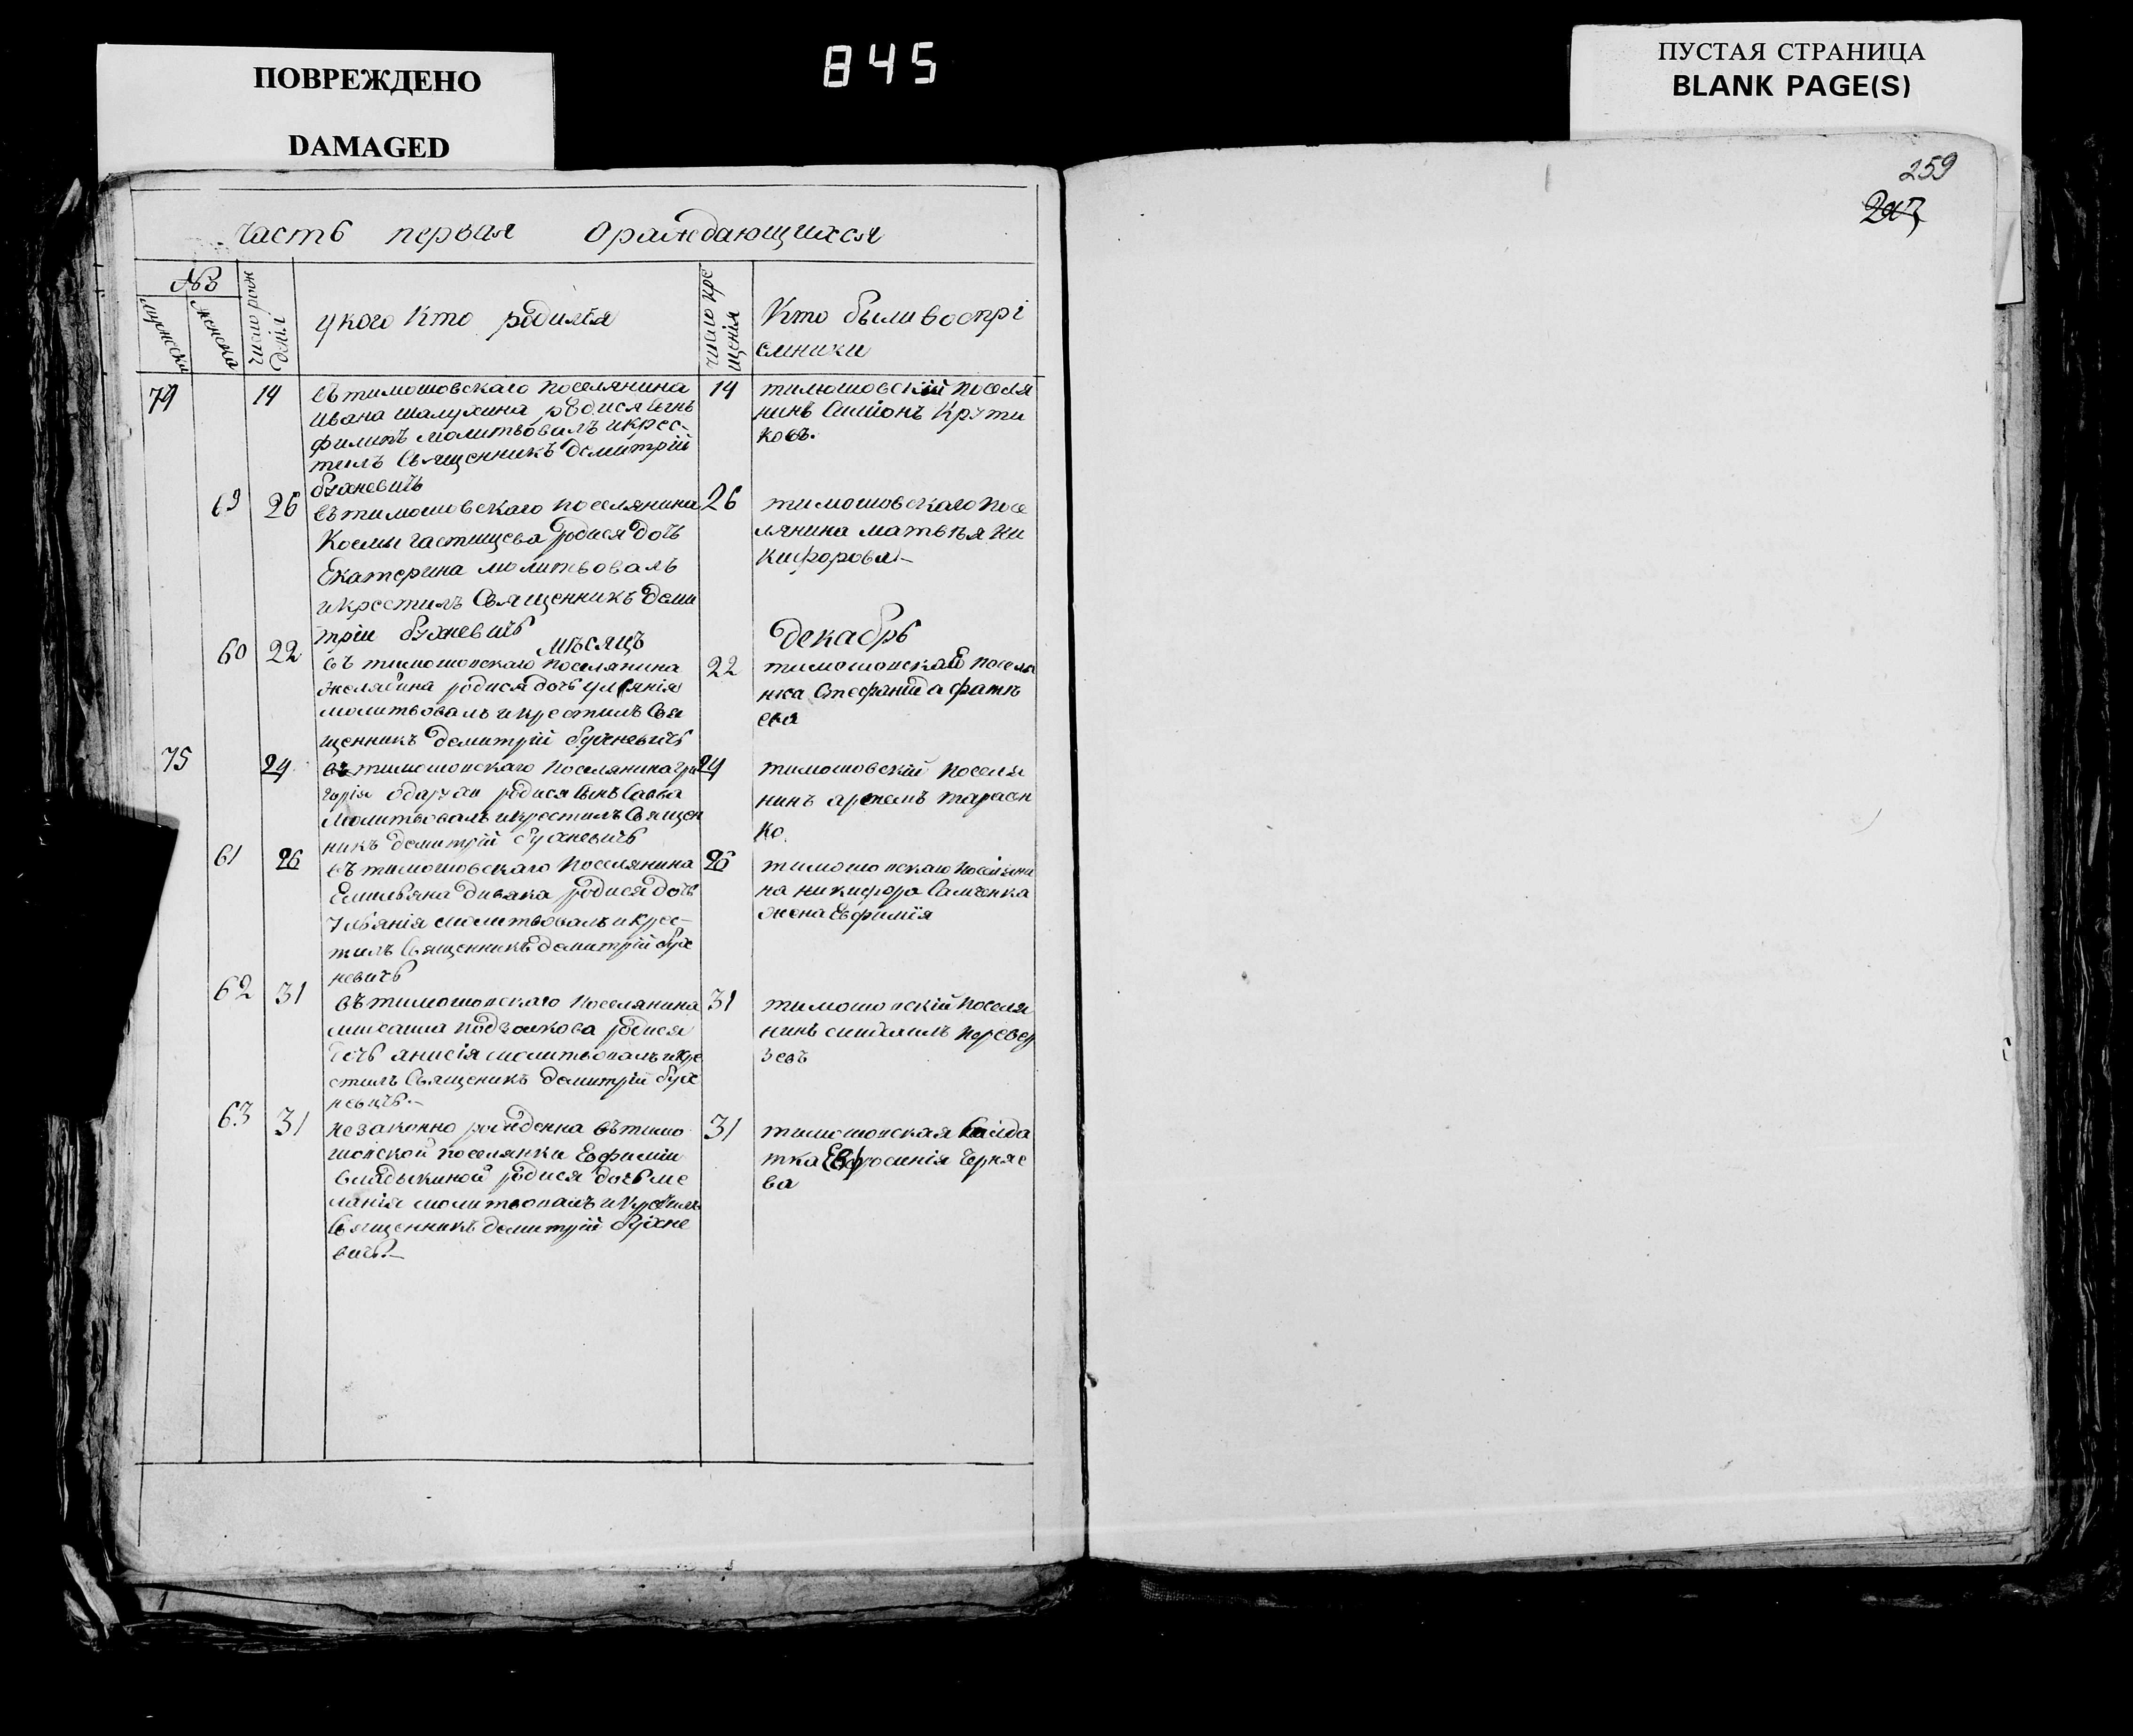 ПОВРЕЖДЕНО
DAMAGED
845
ПУСТАЯ СТРАНИЦА
BLANK PAGE(S)
259
часть первая о раждающихся
№
мужеска
женска
число рож
денія
у кого кто родился
число кре
щенія
Кто были воспрі
емники
74
14
въ тимошовскаго поселянина
ивана шалухина родися сынъ
филипъ молитвовалъ и крес-
тилъ Священникъ демитрій
бухневичь
14
тимошовскій поселя
нинъ Симіонъ Крути
ковъ.
69
26
въ тимошовскаго поселянина
Козмы частищева родися дочь
Екатерина молитвовалъ
и крестилъ Священникъ деми
тріи бухневичь
26
тимошовскаго посе
лянина матвѣя ни
кифорова
мѣсяць
декабрь
60
22
въ тимошовскаго поселянина
желябина родися дочь улянія
молитвовалъ и крестилъ Свя
щенникъ демитрій бухневичь
22
тимошовская поселя
нка Стефанида фатѣ
ева
75
24
въ тимошовскаго поселянина гри
горія родися сынъ Савва
молитвовалъ и крестилъ Священ
никъ демитрій бухневичь
24
тимошовскій поселя
нинъ артемъ тарасен
ко.
61
26
въ тимошовскаго поселянина
Емильяна дивака родися дочь
Ульянія молитвовалъ и крес-
тилъ Священникъ демитрій бух
невичь
26
тимошовскаго поселяни
на никифора Самченка
жена Евфимія
62
31
въ тимошовскаго поселянина
михаила родися
дочь анисія молитвовалъ и кре
стилъ Священикъ демитрій бух
невичь.-
31
тимошовскій поселя
нинъ перевер
зевъ
63
31
незаконно рожденна въ тимо
шовской поселянки Евфиміи
владыкиной родися дочь ме
ланія молитвовалъ и крестилъ
Священникъ демитрій бухне
вичь.-
31
тимошовская салда
тка Евфросинія Черняе
ва